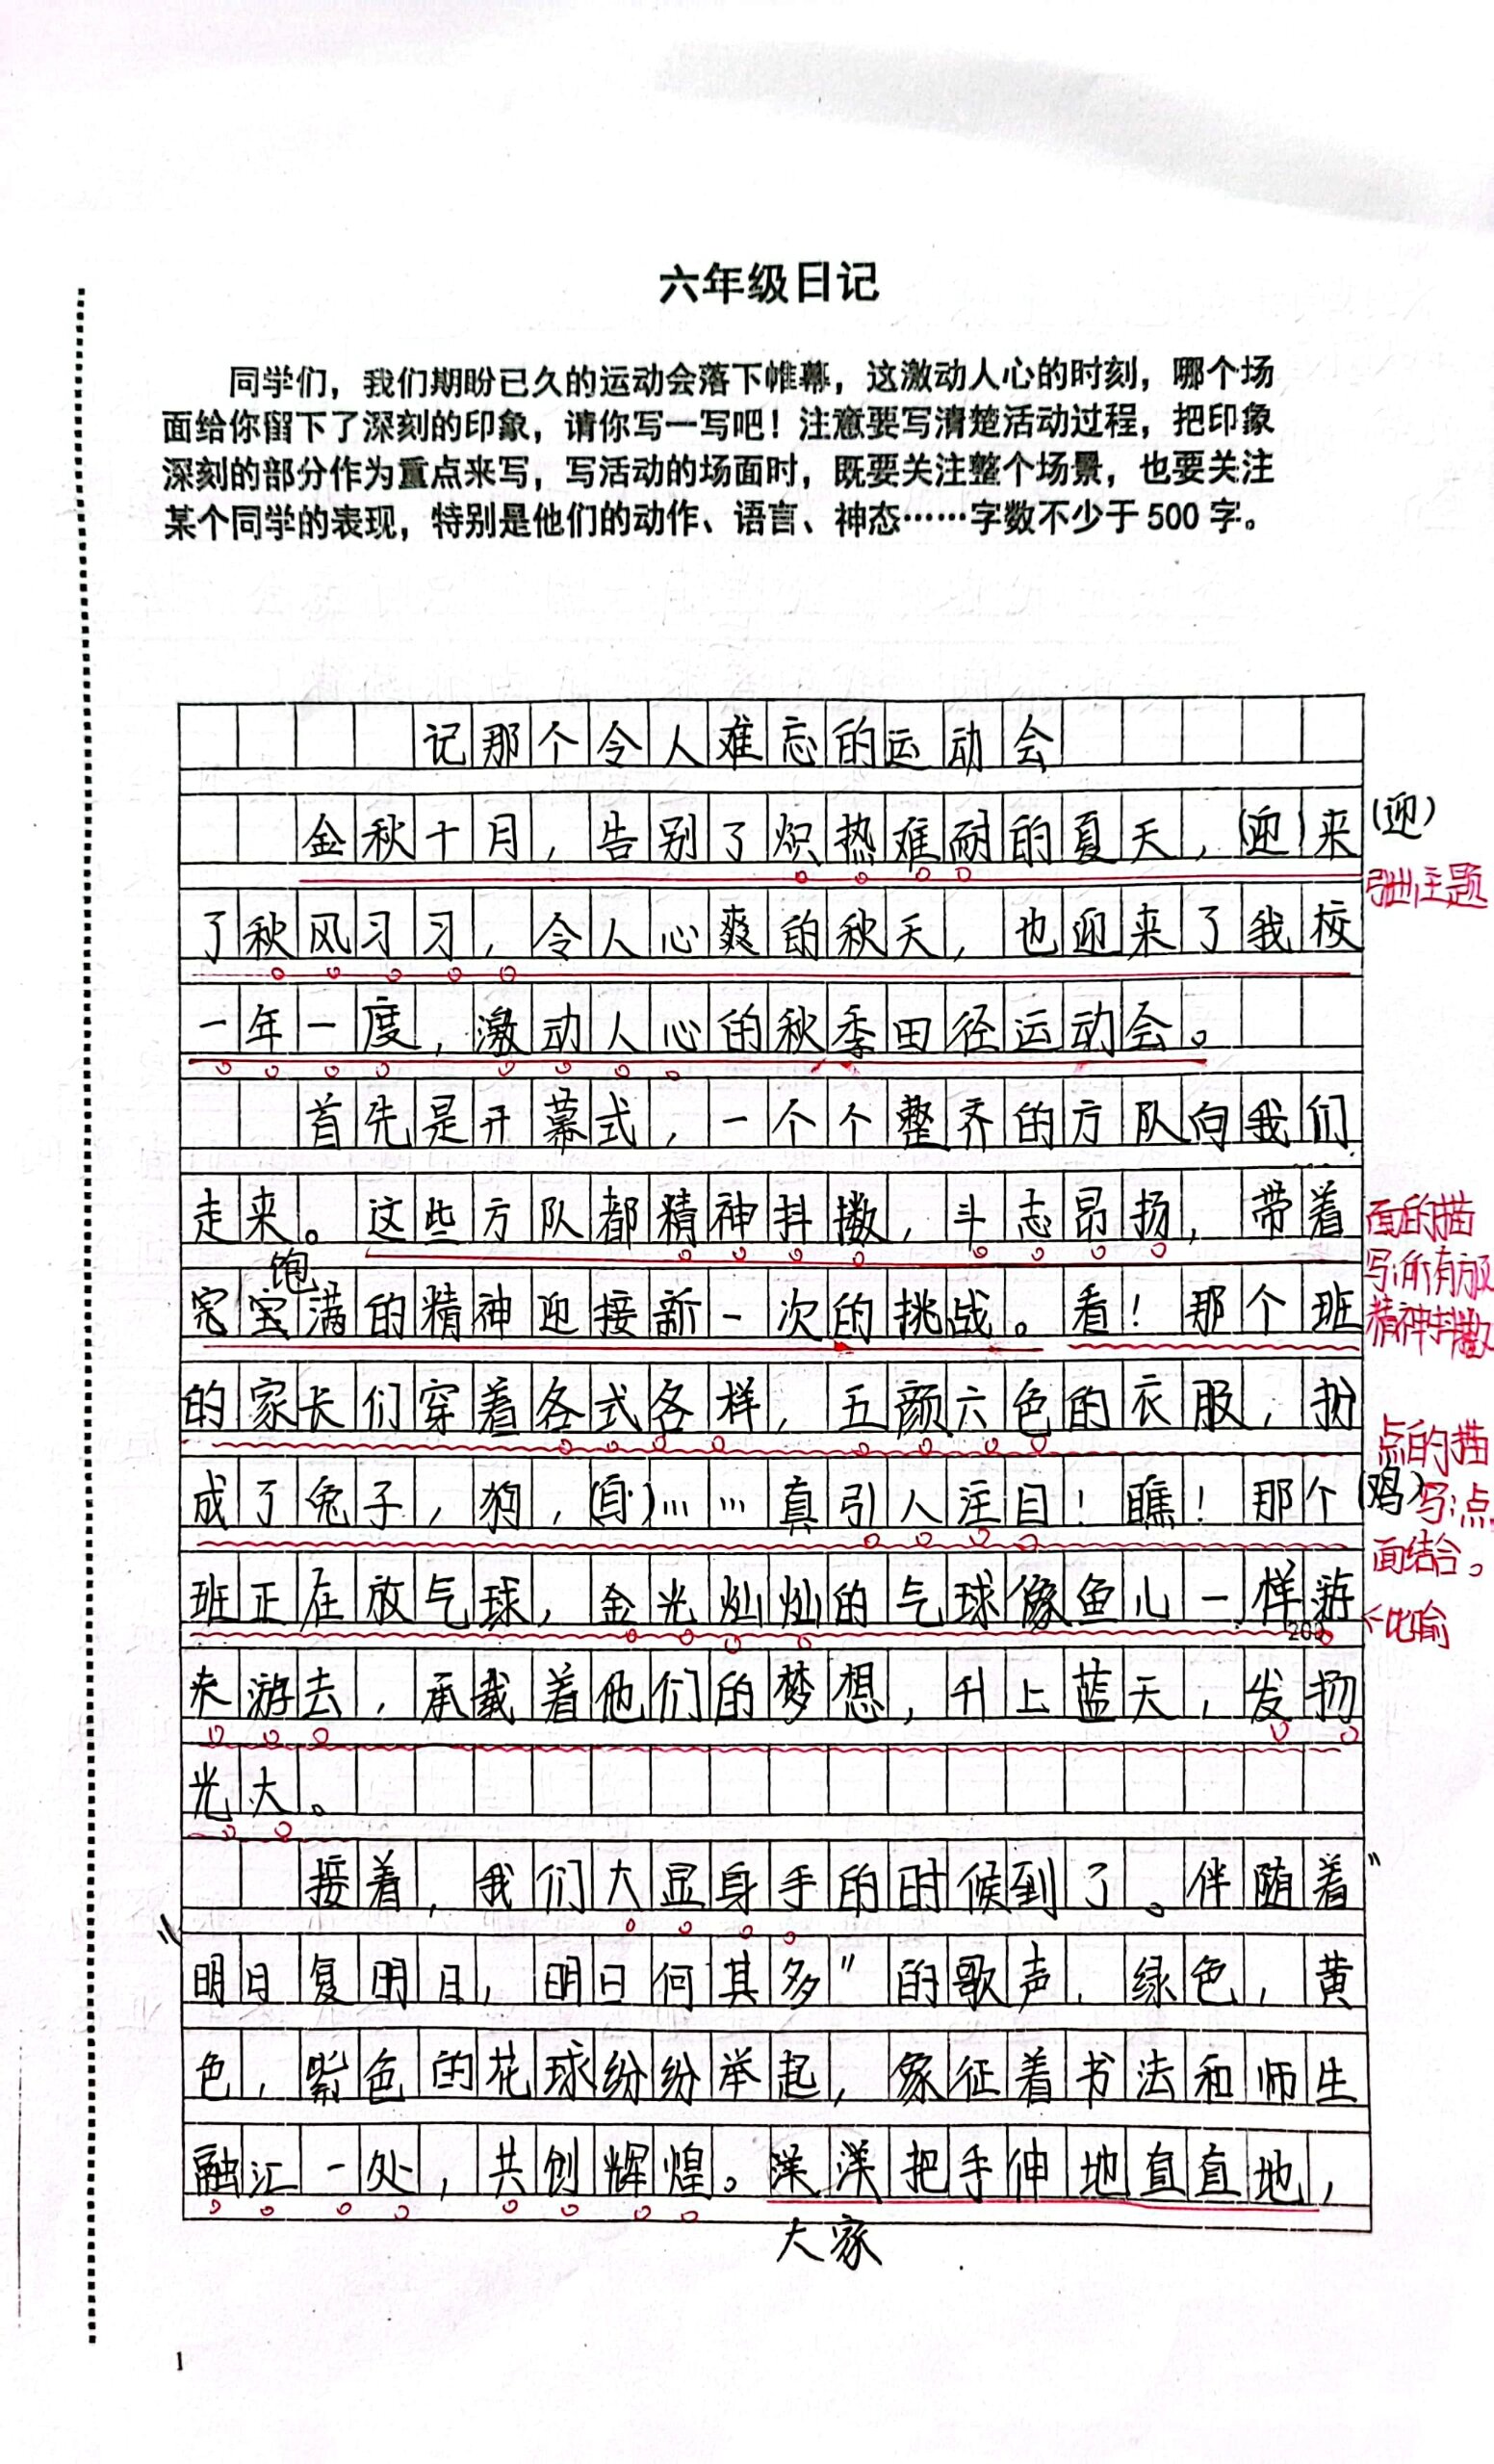 六年级日记
同学们，我们期盼已久的运动会落下帷幕，这激动人心的时刻，哪个场
面给你留下了深刻的印象，请你写一写吧！注意要写清楚活动过程，把印象
深刻的部分作为重点来写，写活动的场面时，既要关注整个场景，也要关注
某个同学的表现，特别是他们的动作、语言、神态……字数不少于 500 字。
记那个令人难忘的运动会
金秋十月，告别了炽热难耐的夏天，(迎)来 (迎)
引出主题
了秋风习习，令人心爽的秋天，也迎来了我校
一年一度，激动人心的秋季田径运动会。
首先是开幕式，一个个整齐的方队向我们
走来。这些方队都精神抖擞，斗志昂扬，带着
面的描
写：所有方队
精神抖擞
饱
满的精神迎接新一次的挑战。看！那个班
的家长们穿着各式各样，五颜六色的衣服，扮
点的描
写：点
面结合。
成了兔子，狗，……真引人注目！瞧！那个 (鸡)
班正在放气球，金光灿灿的气球像鱼儿一样游
←比喻
200
来游去，承载着他们的梦想，升上蓝天，发扬
光大。
接着，我们大显身手的时候到了。伴随着"
"明日复明日，明日何其多"的歌声，绿色，黄
色，紫色的花球纷纷举起，象征着书法和师生
融汇一处，共创辉煌。洋洋把手伸地直直地，
大家
1